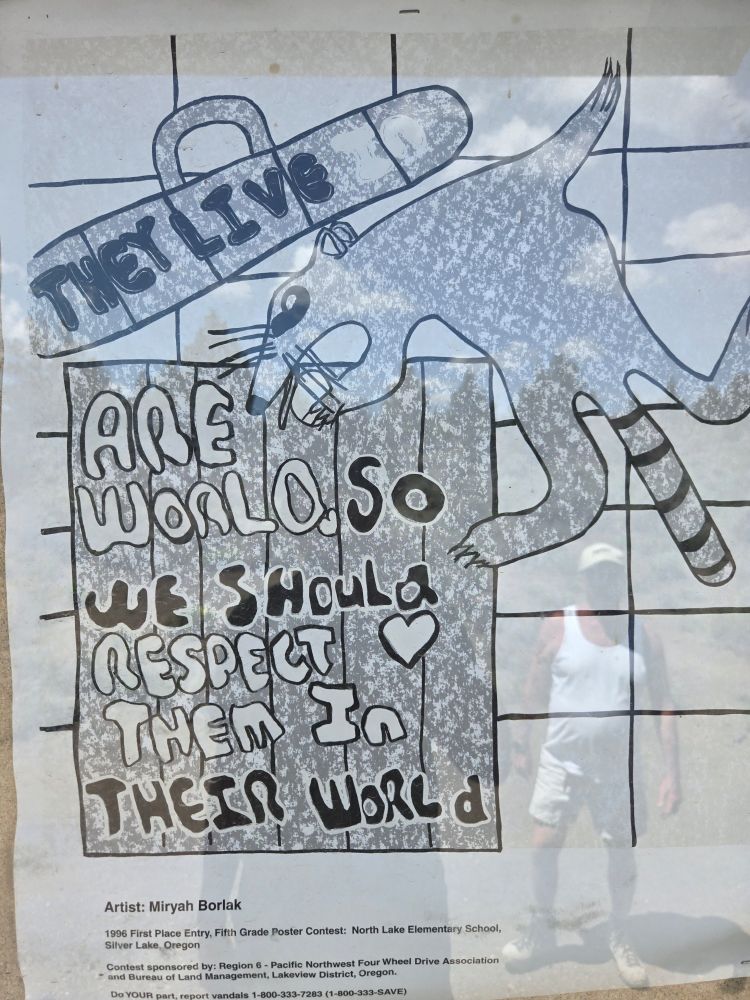 THEY LIVE IN
ARE
WORLD. SO
WE SHOULd
RESPECT
THEM In
THEIR WORLd
Artist: Miryah Borlak
1996 First Place Entry, Fifth Grade Poster Contest: North Lake Elementary School,
Silver Lake, Oregon
Contest sponsored by: Region 6 - Pacific Northwest Four Wheel Drive Association
and Bureau of Land Management, Lakeview District, Oregon.
Do YOUR part, report vandals 1-800-333-7283 (1-800-333-SAVE)